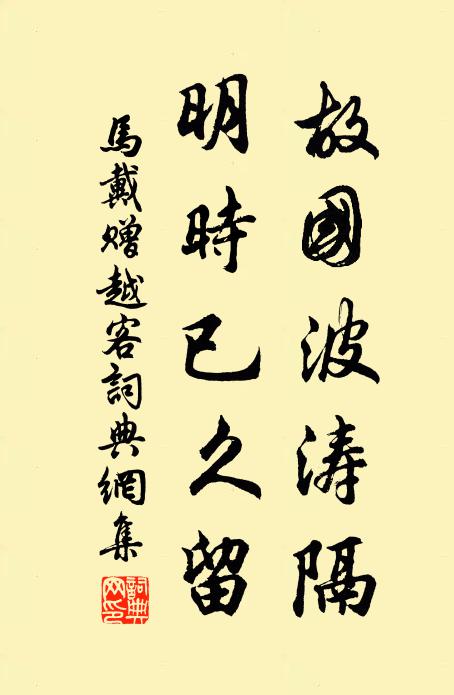 故國波濤隔
明時已久留
馬戴贈越客詞典網集
詞典網印